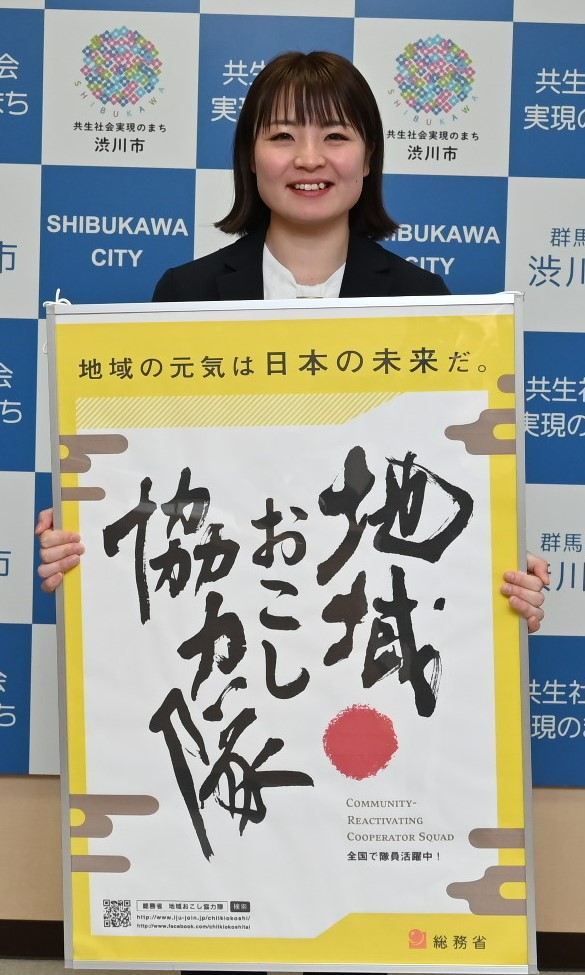 社会
まち
SHIBUKAWA
共生社会実現のまち
渋川市
共生
実現
SHIBUKAWA
共生社会実現のまち
渋川市
共生
実現の
市
SHIBUKAWA
CITY
SHIBUKAWA
CITY
群馬
渋川
社会
まち
共生社
実現の
群馬
渋川
社会
まち
共生社
実現の
地域の元気は日本の未来だ。
地域
おこし
協力隊
COMMUNITY-
REACTIVATING
COOPERATOR SQUAD
全国で隊員活躍中！
総務省 地域おこし協力隊 検索
http://www.iju-join.jp/chiikiokoshi/
http://www.facebook.com/chiikiokoshitai
総務省